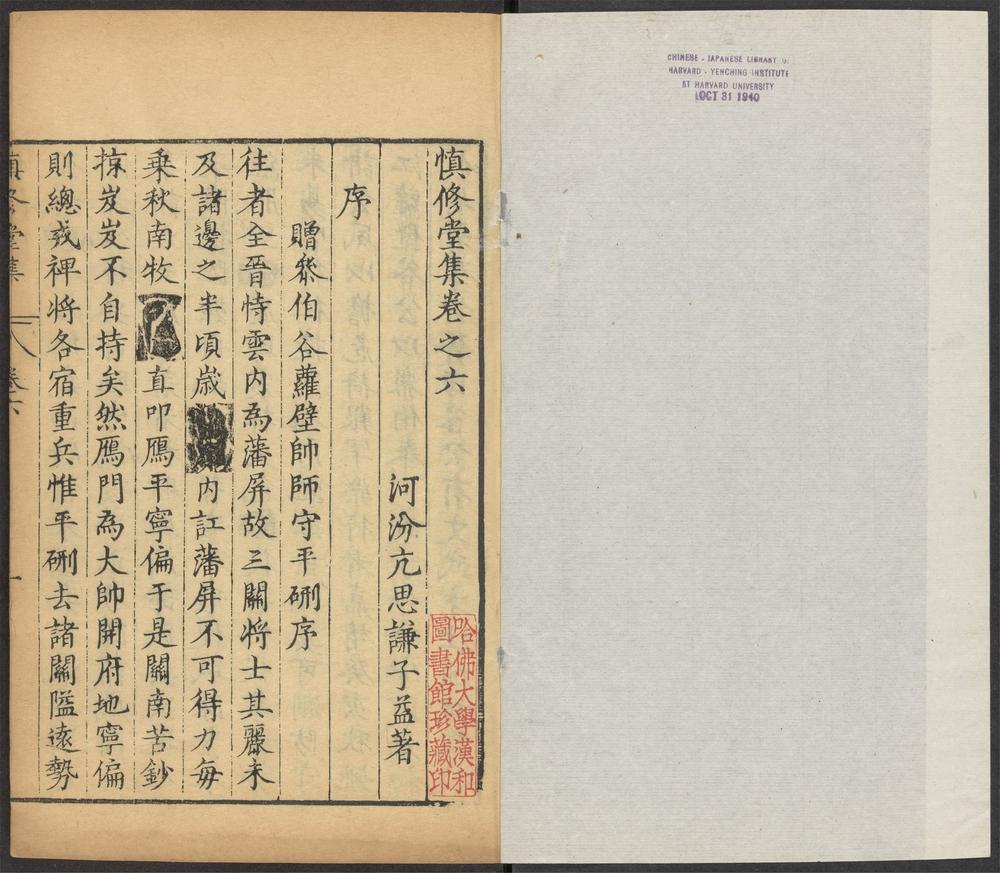 CHINESE - JAPANESE LIBRARY
HARVARD - YENCHING INSTITUTE
AT HARVARD UNIVERSITY
OCT 31 1940
慎修堂集卷之六
哈佛大學漢和
圖書館珍藏印
河汾亢思謙子益著
序
贈叅伯谷蘿壁帥師守平硎序
往者全晉恃雲内為藩屏故三關将士其麗未
及諸邊之半頃歳内訌藩屏不可得力每
乗秋南牧直叩鴈平寧偏于是關南苦鈔
掠岌岌不自持矣然鴈門為大帥開府地寧偏
則總戎裨将各宿重兵惟平硎去諸關隘逺勢
慎修堂集
卷六
一